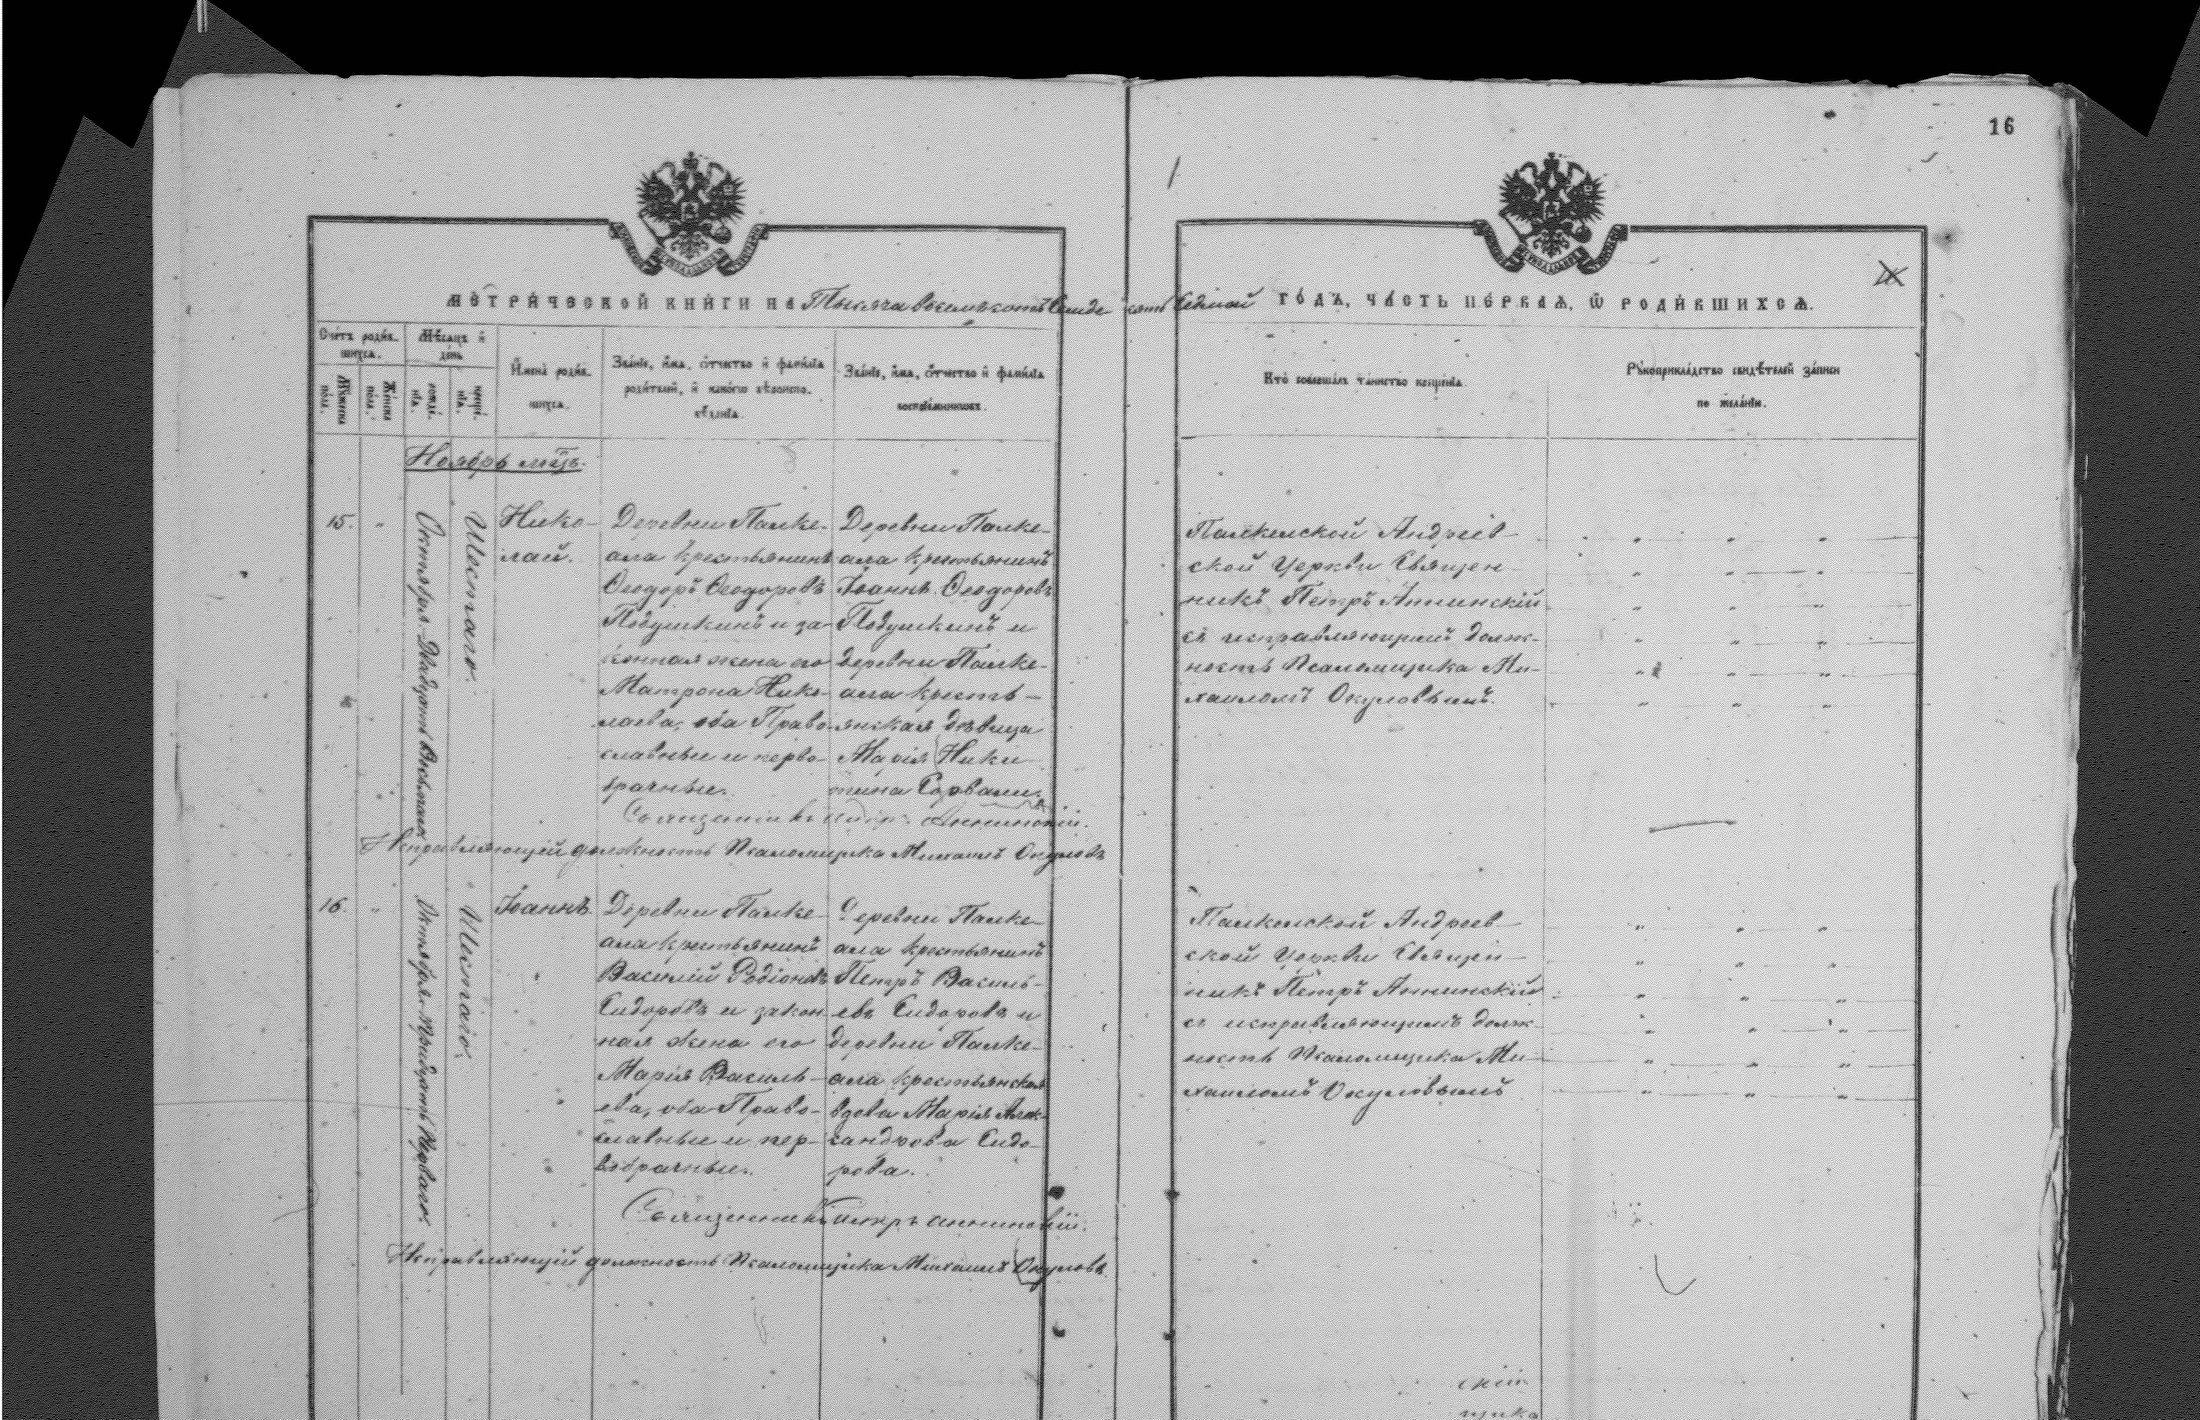 16
МЕТРИЧЕСКОЙ КНИГИ НА Тысяча восемьсотъ Семьде сятъ Седмой ГОДЪ, ЧАСТЬ ПЕРВАЯ, Ѿ РОДИВШИХСЯ.
Счетъ родив-
шихся.
Мѣсяцъ и
день
Мужеска
пола.
Женска
пола.
рожде-
нія.
креще-
нія.
Имена родив-
шихся.
Званіе, имя, отчество и фамилія
родителей, и какого вѣроиспо-
вѣданія.
Званіе, имя, отчество и фамилія
воспріемниковъ.
Кто совершалъ таинство крещенія.
Рукоприкладство свидѣтелей записи
по желанію.
Ноябрь мцъ.
15.
Октября Двадцать Восьмаго
Шестаго.
Нико-
лай.
Деревни Палке-
ала крестьянинъ
Ѳеодоръ Ѳеодоровъ
Подушкинъ и за-
конная жена его
Матрона Нико-
лаева, оба Право-
славные и перво-
брачные.
Деревни Палке-
ала крестьянинъ
Іоаннъ Ѳеодоровъ
Подушкинъ и
деревни Палке-
ала кресть-
янская дѣвица
Марія Ники
тина
Палкельской Андреев-
ской Церкви Священ-
никъ Петръ Аннинскій
съ исправляющимъ долж-
ность Псаломщика Ми-
хаиломъ Окуловымъ.
Священникъ Петръ Аннинскій.
Исправляющій должность Псаломщика Михаилъ Окуловъ
16.
Октября Тридцать Перваго.
Шестаго.
Іоаннъ
Деревни Палке-
ала крестьянинъ
Василій Родіоновъ
Сидоровъ и закон-
ная жена его
Марія Василь-
ева, оба Право-
славные и пер-
вобрачные.
Деревни Палке-
ала крестьянинъ
Петръ Василь-
евъ Сидоровъ и
деревни Палке-
ала крестьянская
вдова Марія Алек-
сандрова Сидо-
рова.
Палкельской Андреев-
ской Церкви Священ-
никъ Петръ Аннинскій
съ исправляющимъ долж-
ность Псаломщика Ми-
хаиломъ Окуловымъ
Священникъ Петръ Аннинскій.
Исправляющій должность Псаломщика Михаилъ Окуловъ.
скій
щика